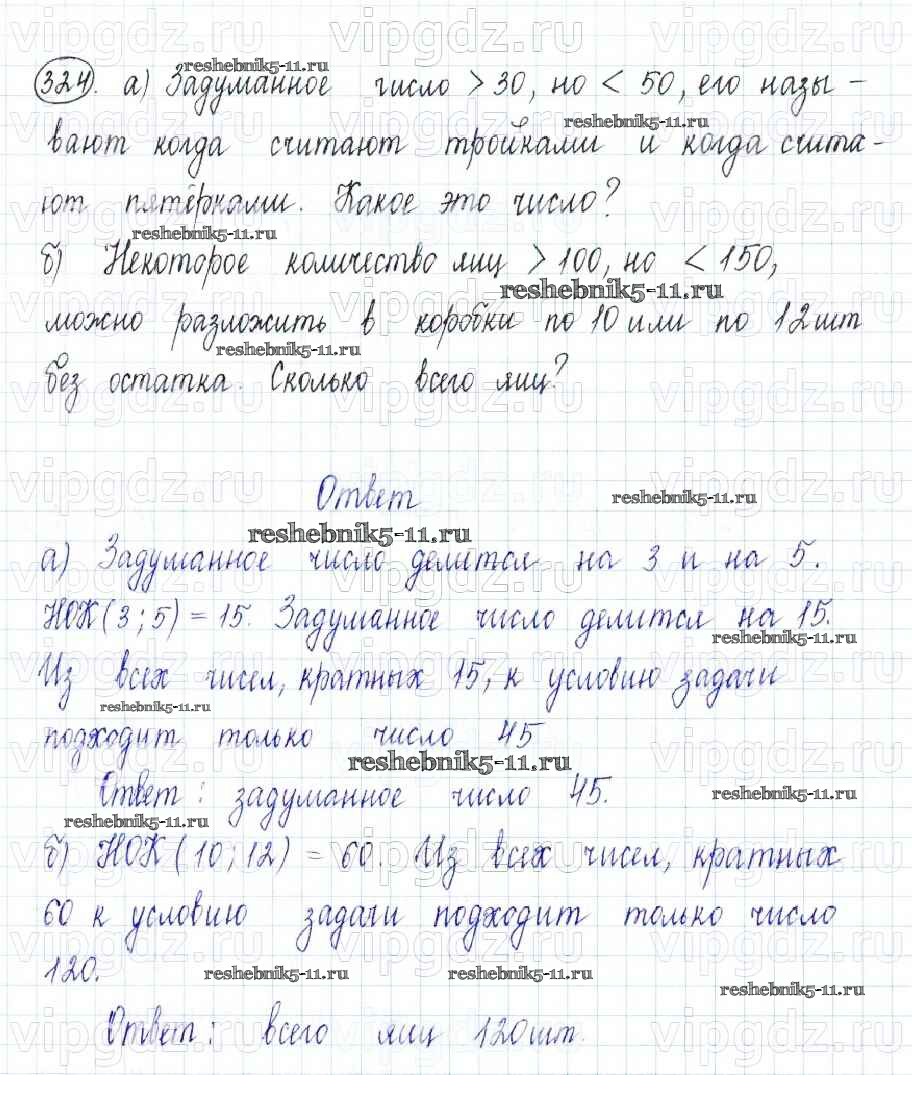 324. а) Задуманное число > 30, но < 50, его назы-
вают когда считают тройками и когда счита-
ют пятёрками. Какое это число?
б) Некоторое количество яиц > 100, но < 150,
можно разложить в коробки по 10 или по 12 шт
без остатка. Сколько всего яиц?
Ответ
а) Задуманное число делится на 3 и на 5.
НОК (3; 5) = 15. Задуманное число делится на 15.
Из всех чисел, кратных 15, к условию задачи
подходит только число 45
Ответ: задуманное число 45.
б) НОК (10; 12) = 60. Из всех чисел, кратных
60 к условию задачи подходит только число
120.
Ответ: всего яиц 120 шт.
vipgdz.ru
reshebnik5-11.ru